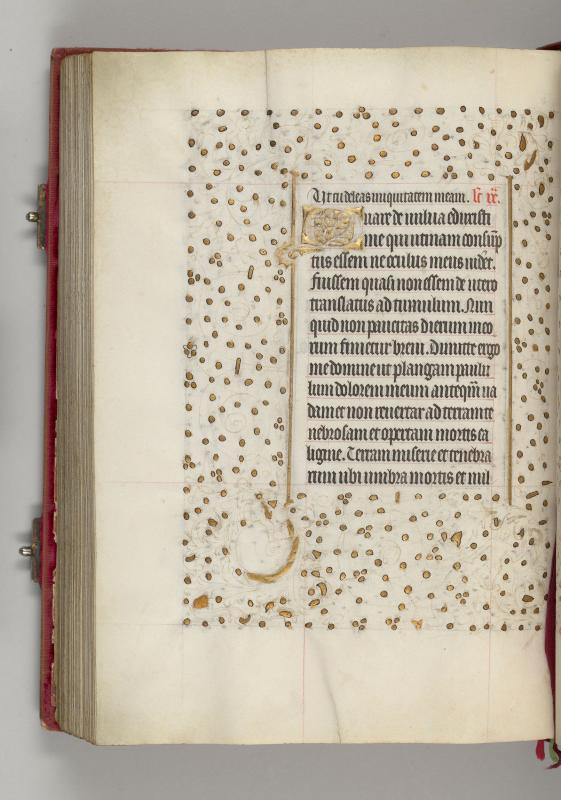 Ut tu deleas iniquitatem meam. lc̄ ix.
Quare de vulva eduxisti
me qui utinam consūp
tus essem ne oculus meus vidēt.
Fuissem quasi non essem de utero
translatus ad tumulum. Nun
quid non paucitas dierum meo
rum finietur brevi. Dimitte ergo
me domine ut plangam paulu
lum dolorem meum anteqm̄ va
dam et non revertar ad terram te
nebrosam et opertam mortis ca
ligine. Terram miserie et tenebra
rum ubi umbra mortis et nul